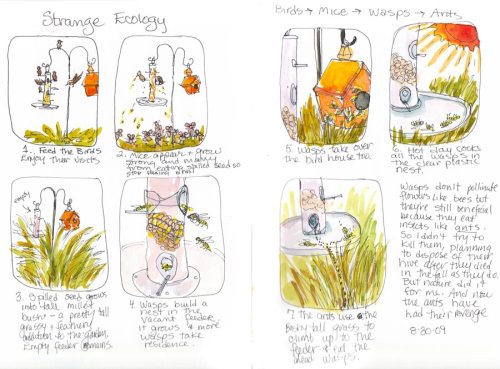 Strange Ecology
1. Feed the Birds
Enjoy their visits
2. Mice appear & grow
strong and many
from eating spilled seed so
stop feeding birds!
empty
3. Spilled seed grows
into tall millet
bush - a pretty tall
grassy & feathery
addition to the garden.
Empty feeder remains.
4. Wasps build a
nest in the
vacant feeder.
it grows & more
wasps take
residence.
Birds → Mice → Wasps → Ants
5. Wasps take over
the bird house too.
6. Hot day cooks
all the wasps in
the clear plastic
nest.
7. The ants use the
tall grass to
climb up to the
feeder & eat the
dead wasps.
Wasps don't pollinate
flowers like bees but
they're still beneficial
because they eat
insects like ants.
So I didn't try to
kill them, planning
to dispose of their
hive after they died
in the fall as they do.
But nature did it
for me. And now
the ants have
had their revenge
8-30-09